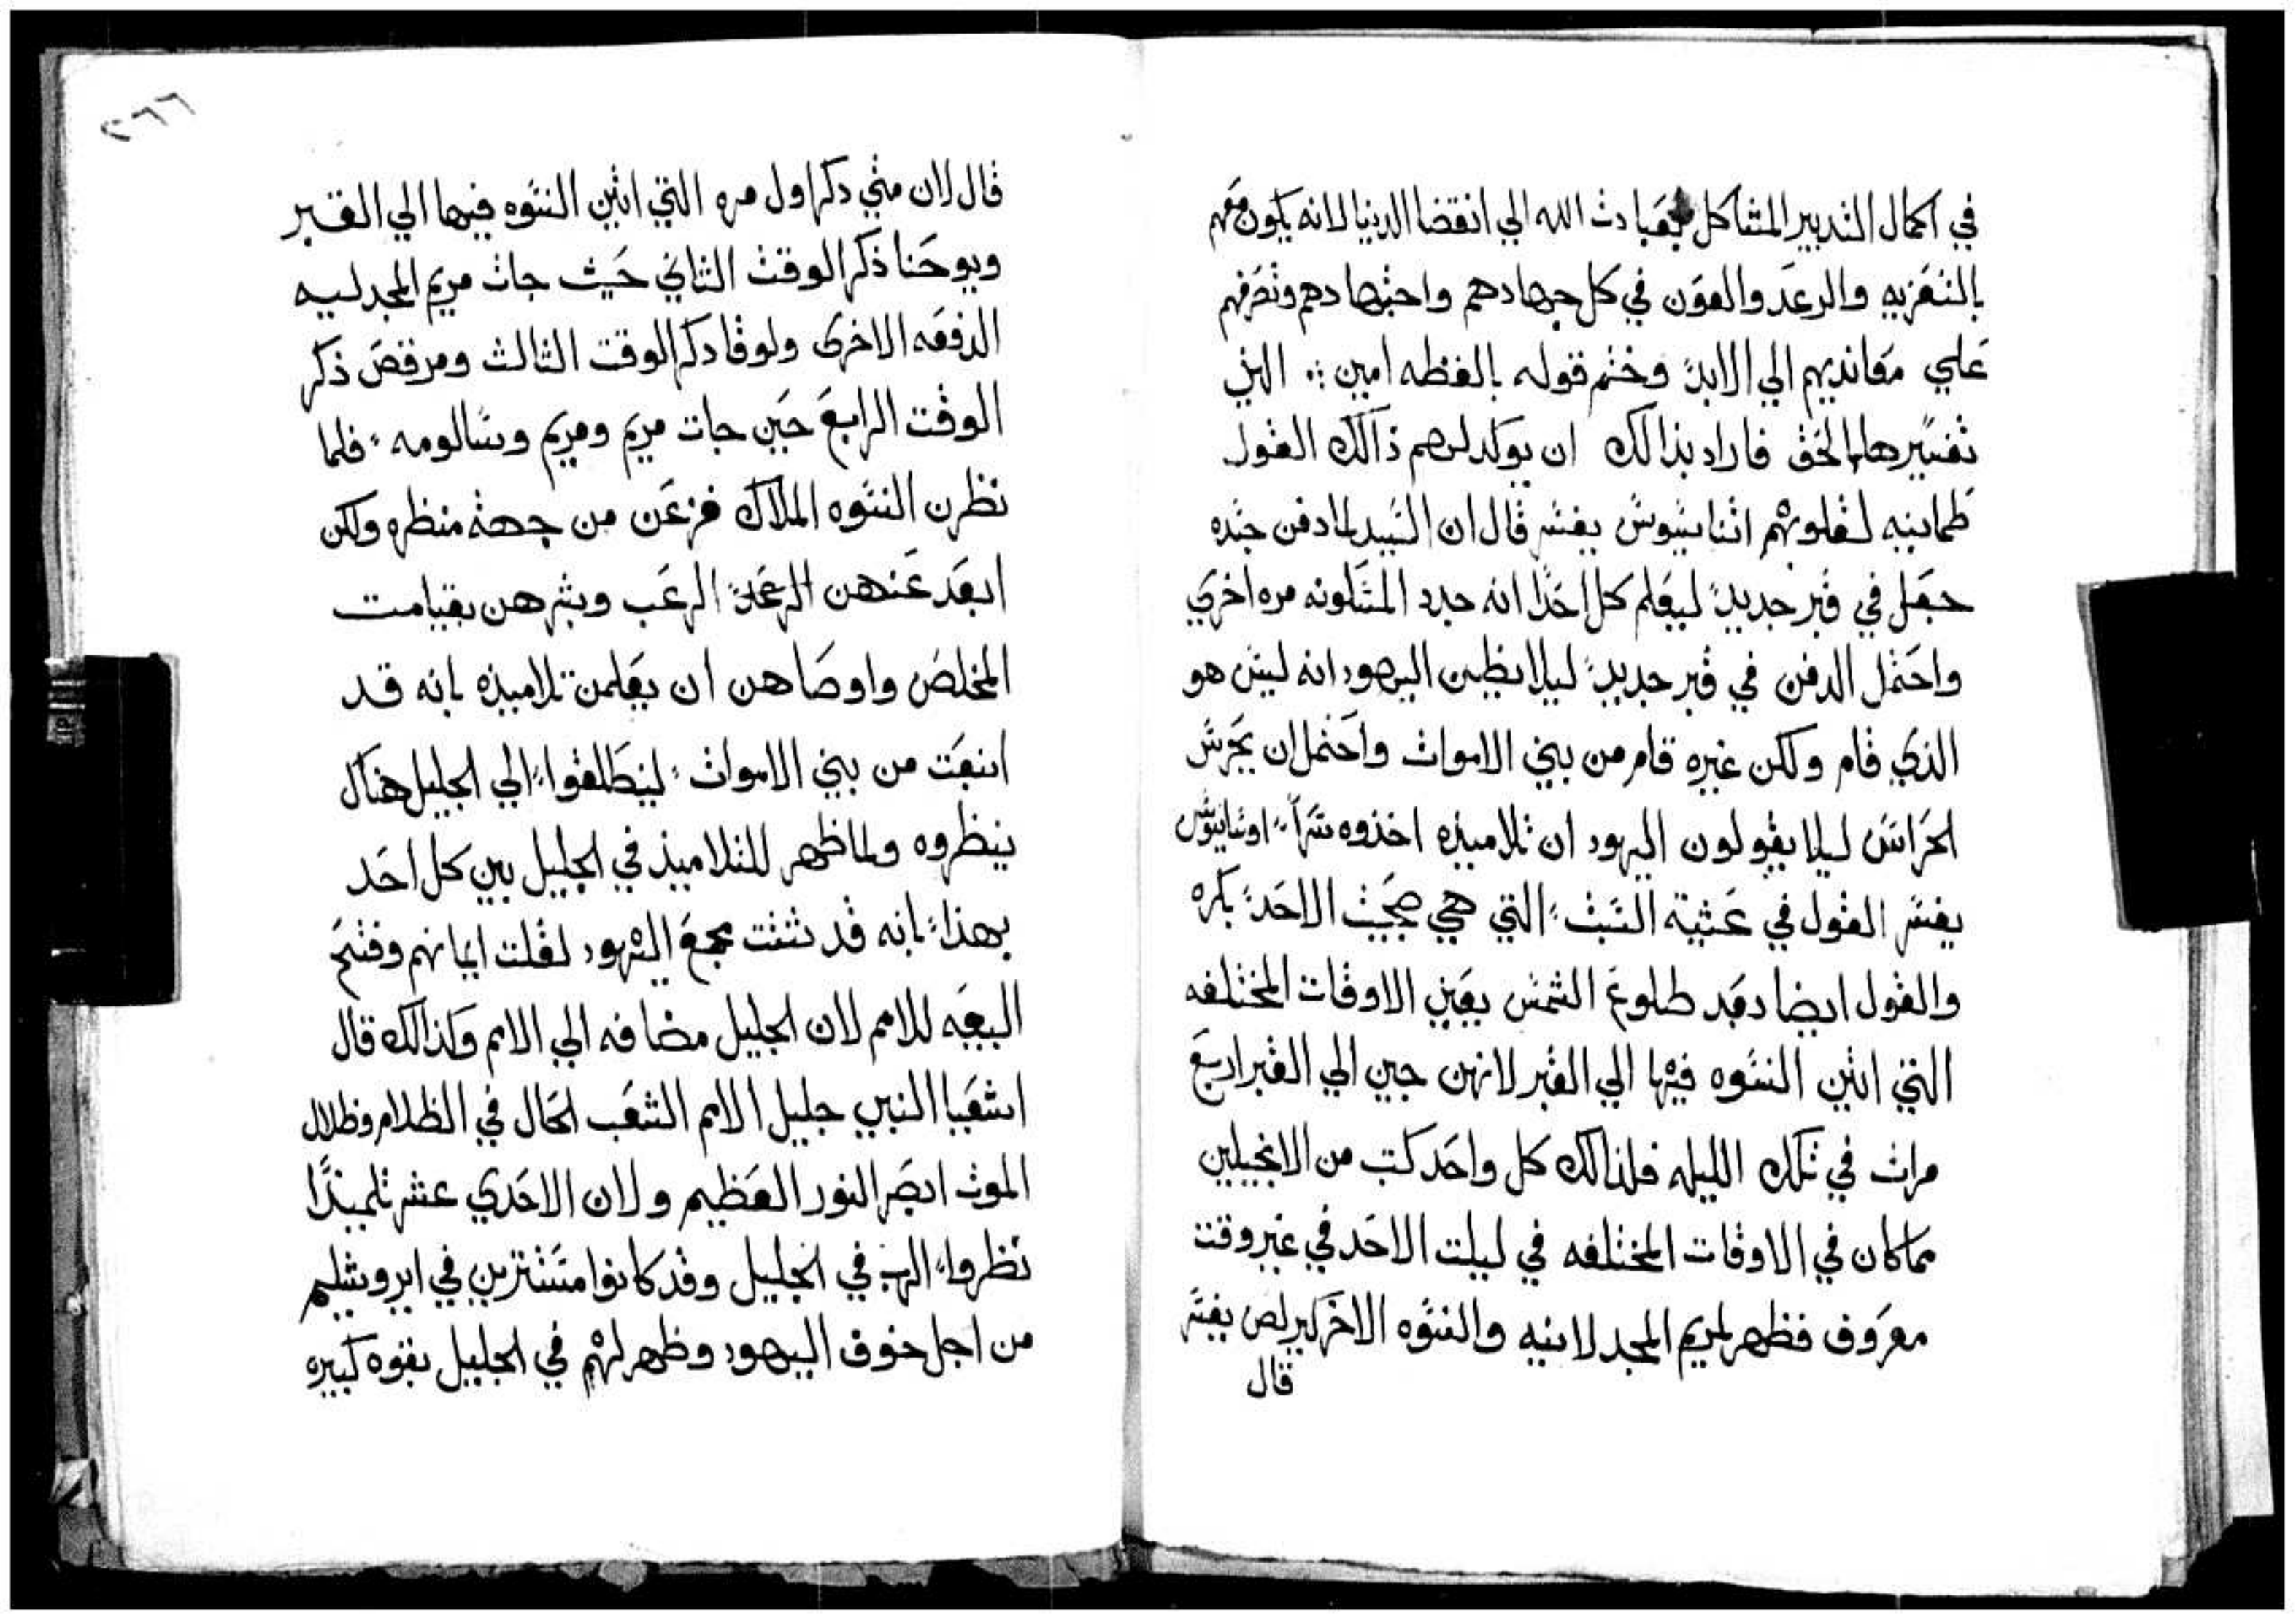 في اكمال التدبير المتشاكل بعبادت الله الي انقضا الدنيا لانه يكون معهم
بالتعزيه والرعد والعون في كل جهادهم واجتهادهم وتصرفهم
علي معانديهم الي الابد وختم قوله بالفظه امين ∴ الذي
تفسيرها بالحق فاراد بذالك ان يوكد لهم ذالك القول
طمانينه لقلوبهم اثناسيوس يفسر قال ان السيد لما دفن جسده
جعل في قبر جديد ليعلم كل احدا انه جدد المسكونه مره اخري
واحتمل الدفن في قبر جديد ليلا يظن اليهود انه ليس هو
الذي قام ولكن غيره قام من بين الاموات واحتمل ان يحرس
الحراس ليلا يقولون اليهود ان تلاميذه اخذوه سرا اوسابيوس
يفسر القول في عشية السبت التي هي صبحيت الاحد بكره
والقول ايضا بعد طلوع الشمس يعني الاوقات المختلفه
التي اتين النسوه فيها الي القبر لانهن جين الي القبر اربع
مرات في تلك الليله فلذالك كل واحد كتب من الانجيلين
مما كان في الاوقات المختلفه في ليلت الاحد في غير وقت
معروف فظهر لمريم المجدلانيه والنسوه الاخر كيرلص يفسر
قال
٢٦٦
قال لان متي دكر اول مره التي اتين النسوه فيها الي القبر
ويوحنا ذكر الوقت الثاني حيث جات مريم المجدليه
الدفعه الاخرى ولوقا دكر الوقت الثالث ومرقص ذكر
الوقت الرابع حين جات مريم ومريم وسالومه فلما
نظرن النسوه الملاك فزعن من جهة منظره ولكن
ابعد عنهن الرعب وبشرهن بقيامت
المخلص واوصاهن ان يعلمن تلاميذه بانه قد
انبعت من بين الاموات لينطلقوا الي الجليل هناك
ينظروه ولما ظهر للتلاميذ في الجليل بين كل احد
بهذا بانه قد تشتت مجمع اليهود لقلت ايمانهم وفتح
البيعه للامم لان الجليل مضافه الي الامم وكذالك قال
اشعيا النبي جليل الامم الشعب الحال في الظلام وظلال
الموت ابصر النور العظيم ولان الاحدي عشر تلميذا
نظروا الرب في الجليل وقد كانوا مستترين في ايروشليم
من اجل خوف اليهود وظهر لهم في الجليل بقوه كبيره